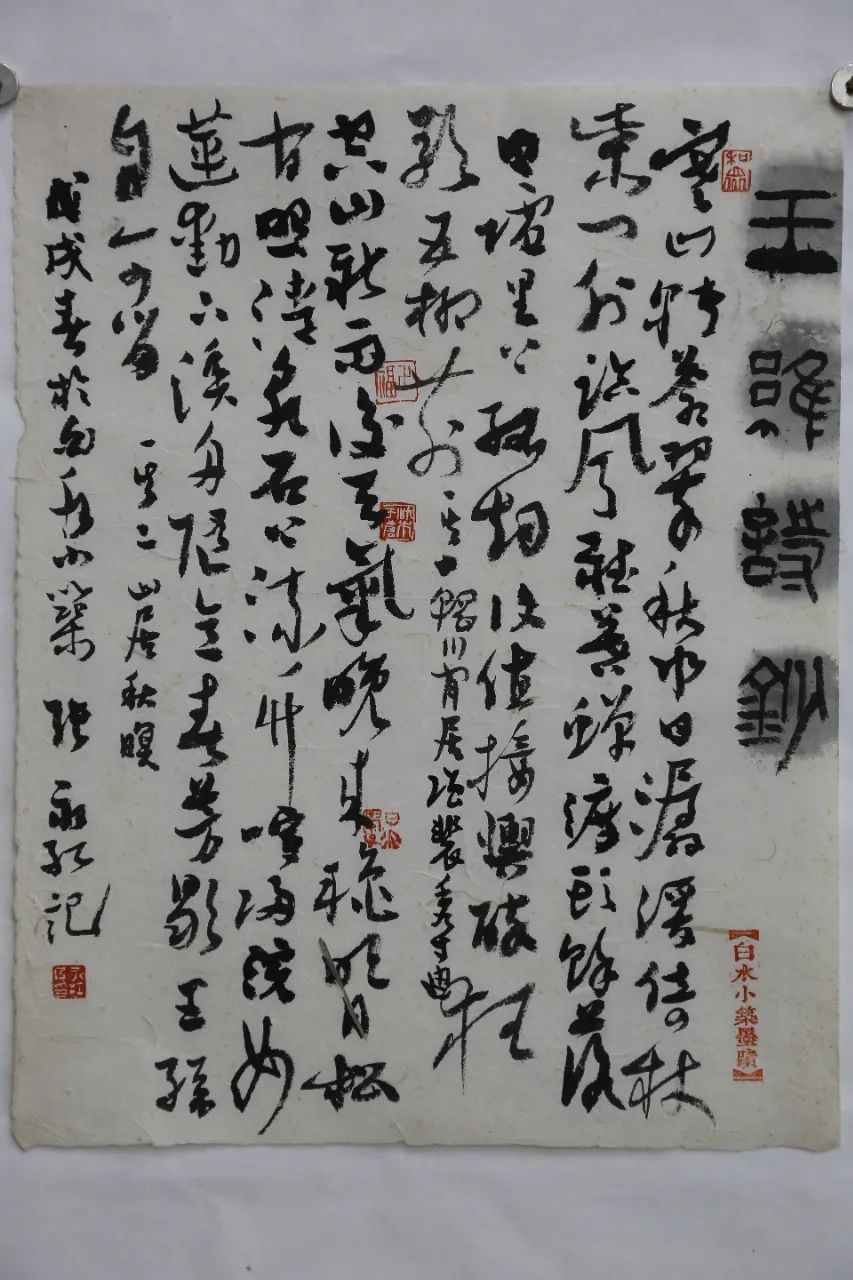 王維詩鈔
寒山轉蒼翠秋水日潺湲倚杖
柴门外临风聽暮蟬渡头餘落
日墟里上孤烟復值接輿醉狂
歌五柳前 其一輞川闲居赠裴秀才迪
空山新雨後天氣晚来秋明月松
间照清泉石上流竹喧歸浣女
蓮動下漁舟随意春芳歇王孫
自可留 其二 山居秋暝
戊戌春於白水小築 张永红记
【白水小築墨蹟】